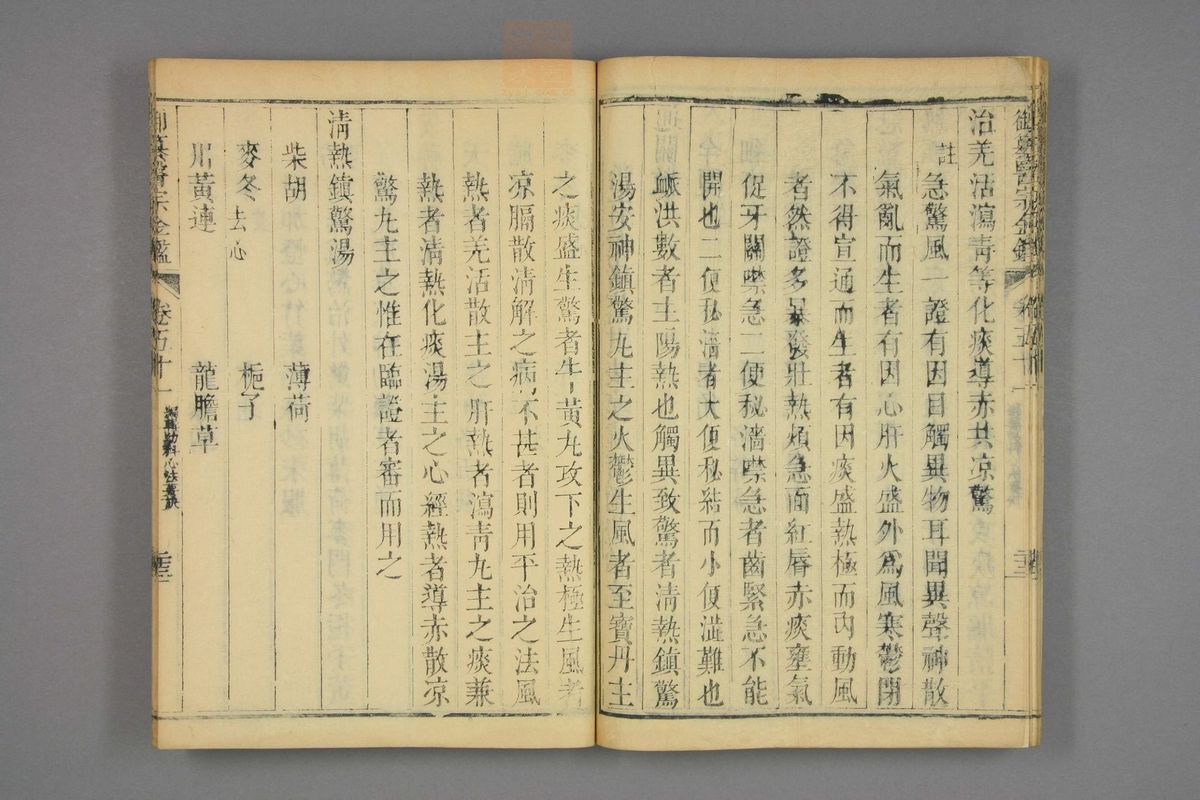 治羌活瀉靑等化痰導赤共凉驚
註
急驚風一證有因目觸異物耳聞異聲神散
氣亂而生者有因心肝火盛外爲風寒鬱閉
不得宣通而生者有因痰盛熱極而內動風
者然證多暴發壯熱煩急面紅唇赤痰壅氣
促牙關噤急二便秘濇噤急者齒緊急不能
開也二便秘濇者大便秘結而小便澁難也
脈洪數者主陽熱也觸異致驚者淸熱鎮驚
湯安神鎮驚丸主之火鬱生風者至寶丹主
之痰盛生驚者牛黃丸攻下之熱極生風者
凉膈散淸解之病不甚者則用平治之法風
熱者羌活散主之肝熱者瀉靑丸主之痰兼
熱者淸熱化痰湯主之心經熱者導赤散凉
驚丸主之惟在臨證者審而用之
淸熱鎮驚湯
柴胡 薄荷
麥冬去心 梔子
川黃連 龍膽草
御纂醫宗金鑑 卷五十一 編輯幼科心法要訣 二十三